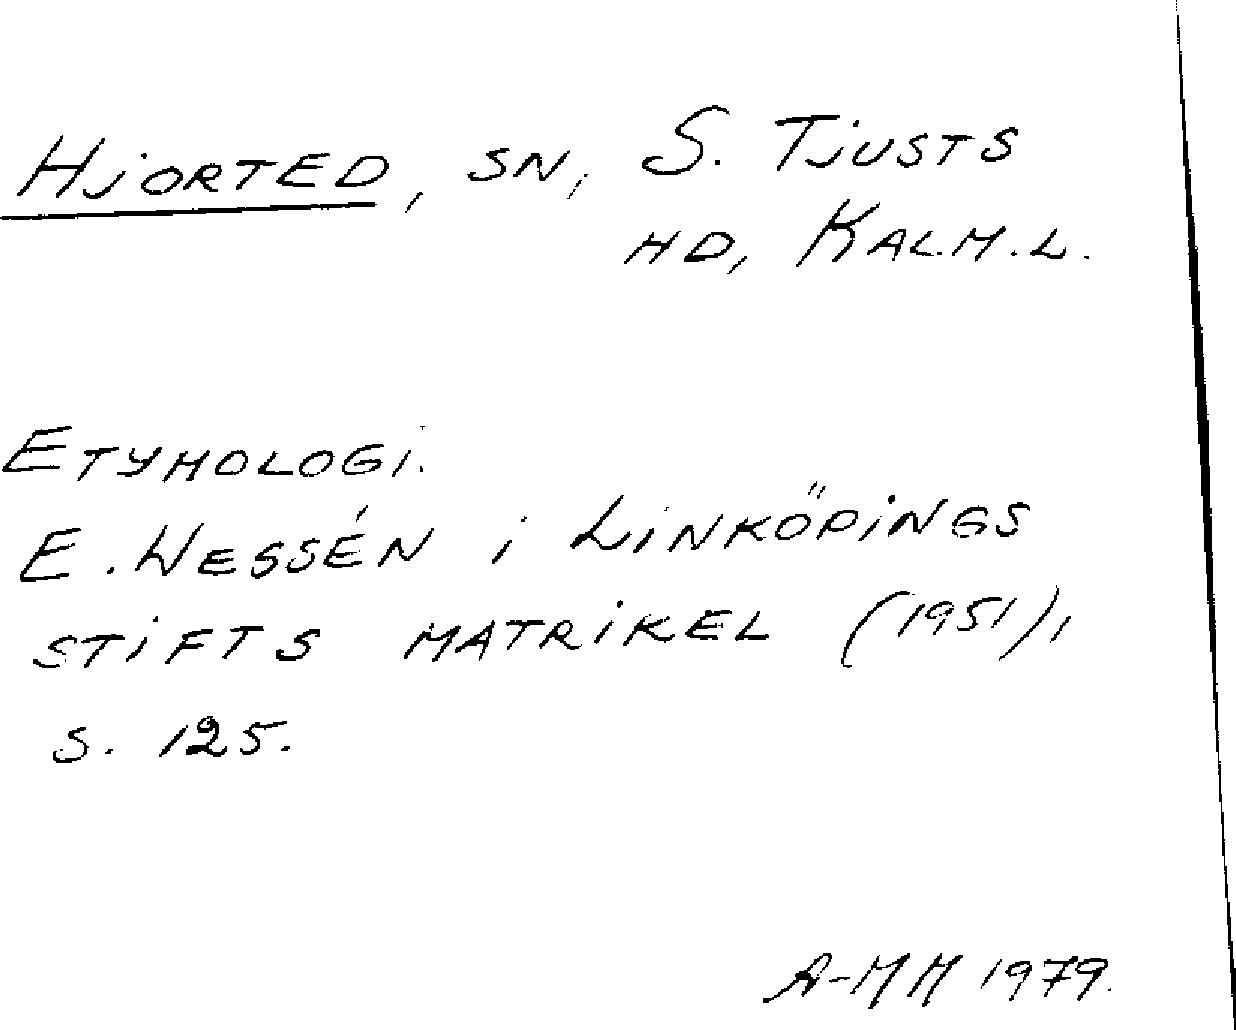 HJORTED, SN, S. TJUSTS
HD, KALM.L.
ETYMOLOGI.
E. WESSÉN i LINKÖPINGS
STIFTS MATRIKEL (1951),
S. 125.
A-MH 1979.